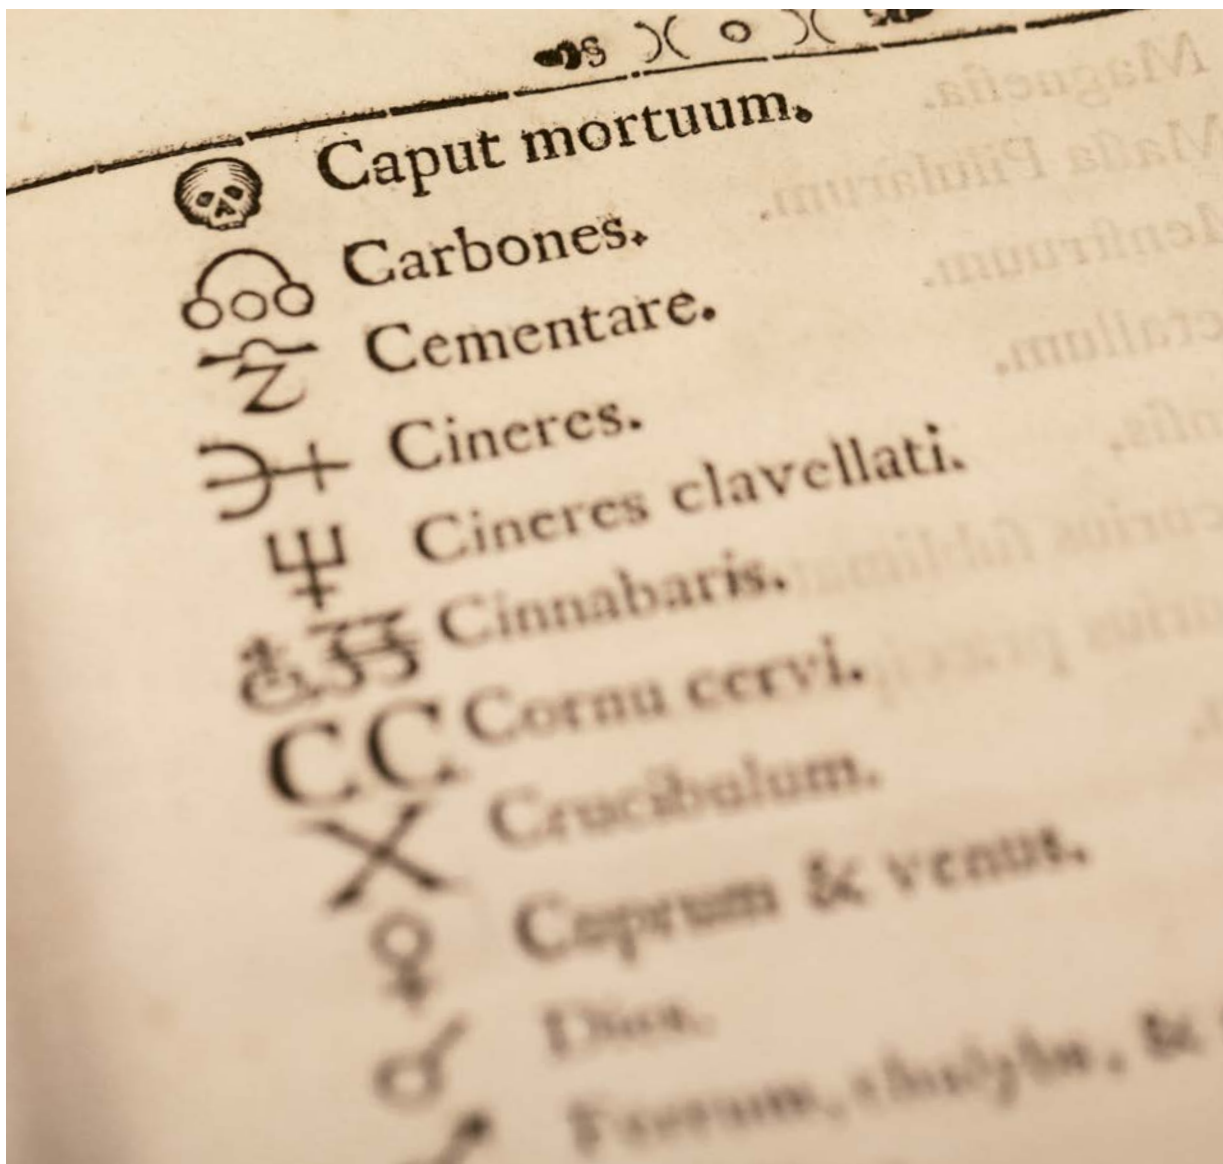 Caput mortuum.
Carbones.
Cementare.
Cineres.
Cineres clavellati.
Cinnabaris.
CC Cornu cervi.
Crucibulum.
Cuprum & venus.
Ferrum, &